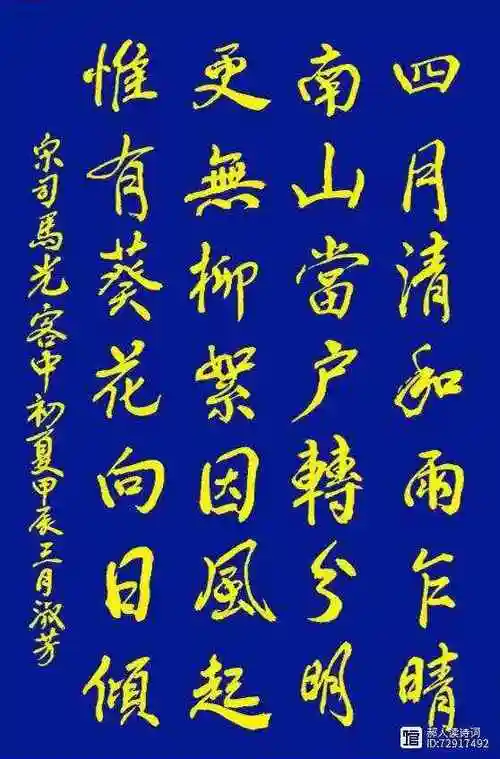 四月清和雨乍晴
南山當户轉分明
更無柳絮因風起
惟有葵花向日傾
宋司馬光客中初夏甲辰三月淑芳
郝人读诗词
ID:72917492